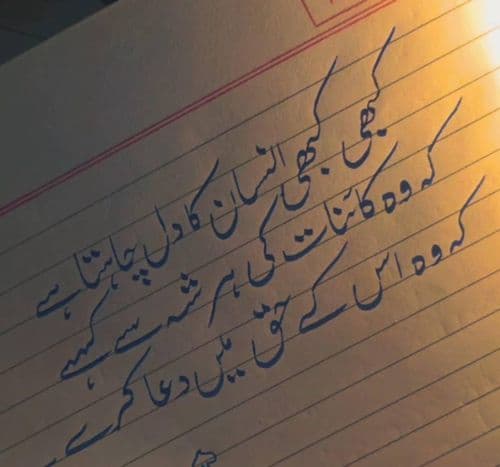 کبھی کبھی انسان کا دل چاہتا ہے
کہ وہ کائنات کی ہر شہ سے کہے
کہ وہ اس کے حق میں دعا کرے